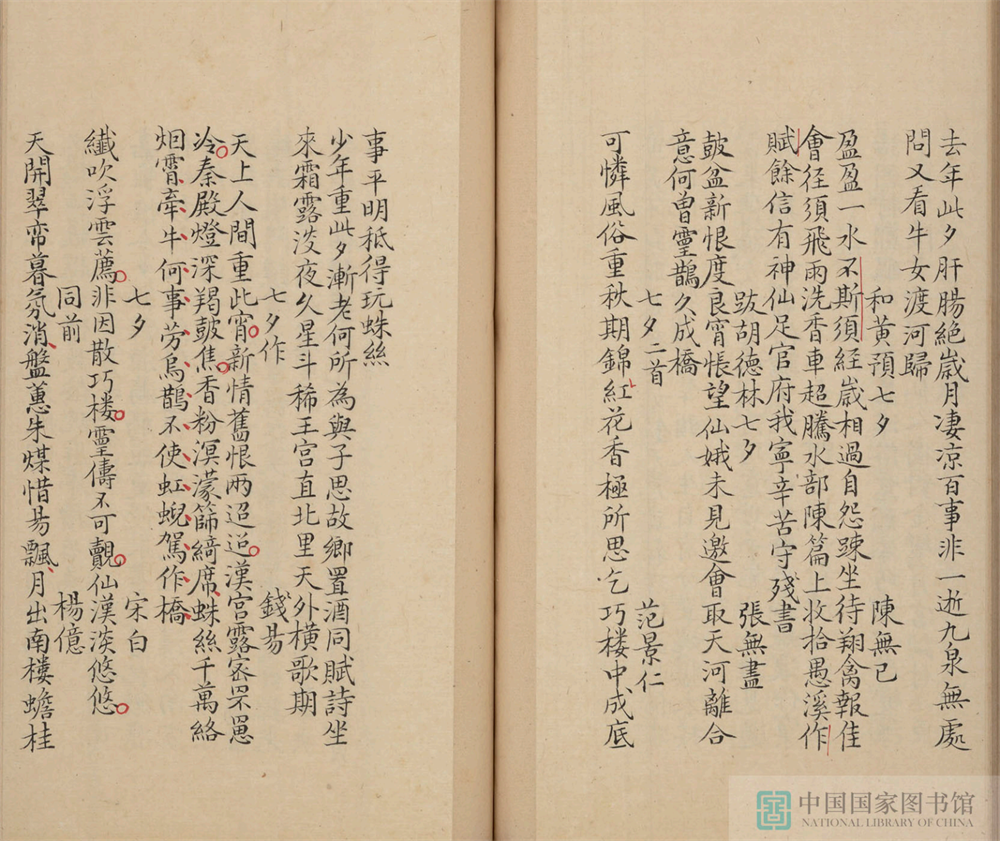 去年此夕肝腸絕歲月凄凉百事非一逝九泉無處
問又看牛女渡河歸
和黃預七夕 陳無已
盈盈一水不斯須經歲相過自怨踈坐待翔禽報佳
會徑須飛雨洗香車超騰水部陳篇上收拾愚溪作
賦餘信有神仙足官府我寧辛苦守殘書
跋胡德林七夕 張無盡
鼓盆新恨度良宵悵望仙娥未見邀會取天河離合
意何曾靈鵲久成橋
七夕二首 范景仁
可憐風俗重秋期錦紅花香極所思乞巧楼中成底
事平明秪得玩蛛絲
少年重此夕漸老何所為與子思故鄉置酒同賦詩坐
來霜露泼夜久星斗稀王宮直北里天外橫歌期
七夕作 錢昜
天上人間重此宵新情舊恨兩迢迢漢宮露密罘罳
冷秦殿燈深羯鼓焦香粉溟濛篩綺席蛛絲千萬絡
烟霄牽牛何事劳烏鵲不使虹蜺駕作橋
七夕 宋白
纖吹浮雲薦非因散巧楼靈儔不可覿仙漢淡悠悠
同前 楊億
天開翠帟暮氛消盤蕙朱煤惜昜飄月出南楼蟾桂
中国国家图书馆
NATIONAL LIBRARY OF CHINA